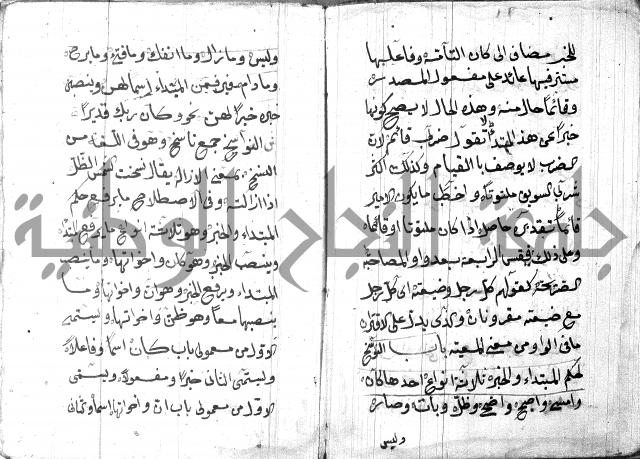 للخبر مضاف الى كان التامة وفاعلها
مستتر فيها عائد على مفعول المصدر
وقائما حال منه وهذه الحال لا يصح كونها
خبرا عن هذا المبتدا فلا تقول ضربي قائم لان
الضرب لا يوصف بالقيام وكذلك اكثر
شربي السويق ملتوتا واخطب ما يكون الامير
قائما تقديره حاصل اذا كان ملتوتا او قائما
وعلى ذلك فقس الرابعة بعد واو المصاحبة
الصريحة كقولهم كل رجل وضيعته اي كل رجل
مع ضيعته مقرونان والذي يدل على الاقتران
ما في الواو من معنى المعية باب النواسخ
لحكم المبتداء والخبر ثلاثة انواع احدها كان
وامسى واصبح واضحى وظل وبات وصار
وليس
وليس وما زال وما انفك وما فتئ وما برح
وما دام فيرفعن المبتداء اسما لهن وينصبن
خبره خبرا لهن نحو وكان ربك قديرا
النواسخ جمع ناسخ وهو في اللغة من
النسخ بمعنى الازالة يقال نسخت الشمس الظل
اذا ازالته وفي الاصطلاح ما يرفع حكم
المبتداء والخبر وهو ثلاثة انواع ما يرفع المبتداء
وينصب الخبر وهو كان واخواتها وما ينصب
المبتداء ويرفع الخبر وهو ان واخواتها وما
ينصبهما معا وهو ظن واخواتها ويسمى
الاول من معمولي باب كان اسما وفاعلا
ويسمى الثاني خبرا ومفعولا ويسمى
الاول من معمولي باب ان واخواتها اسما والثاني
جامعة النجاح الوطنية